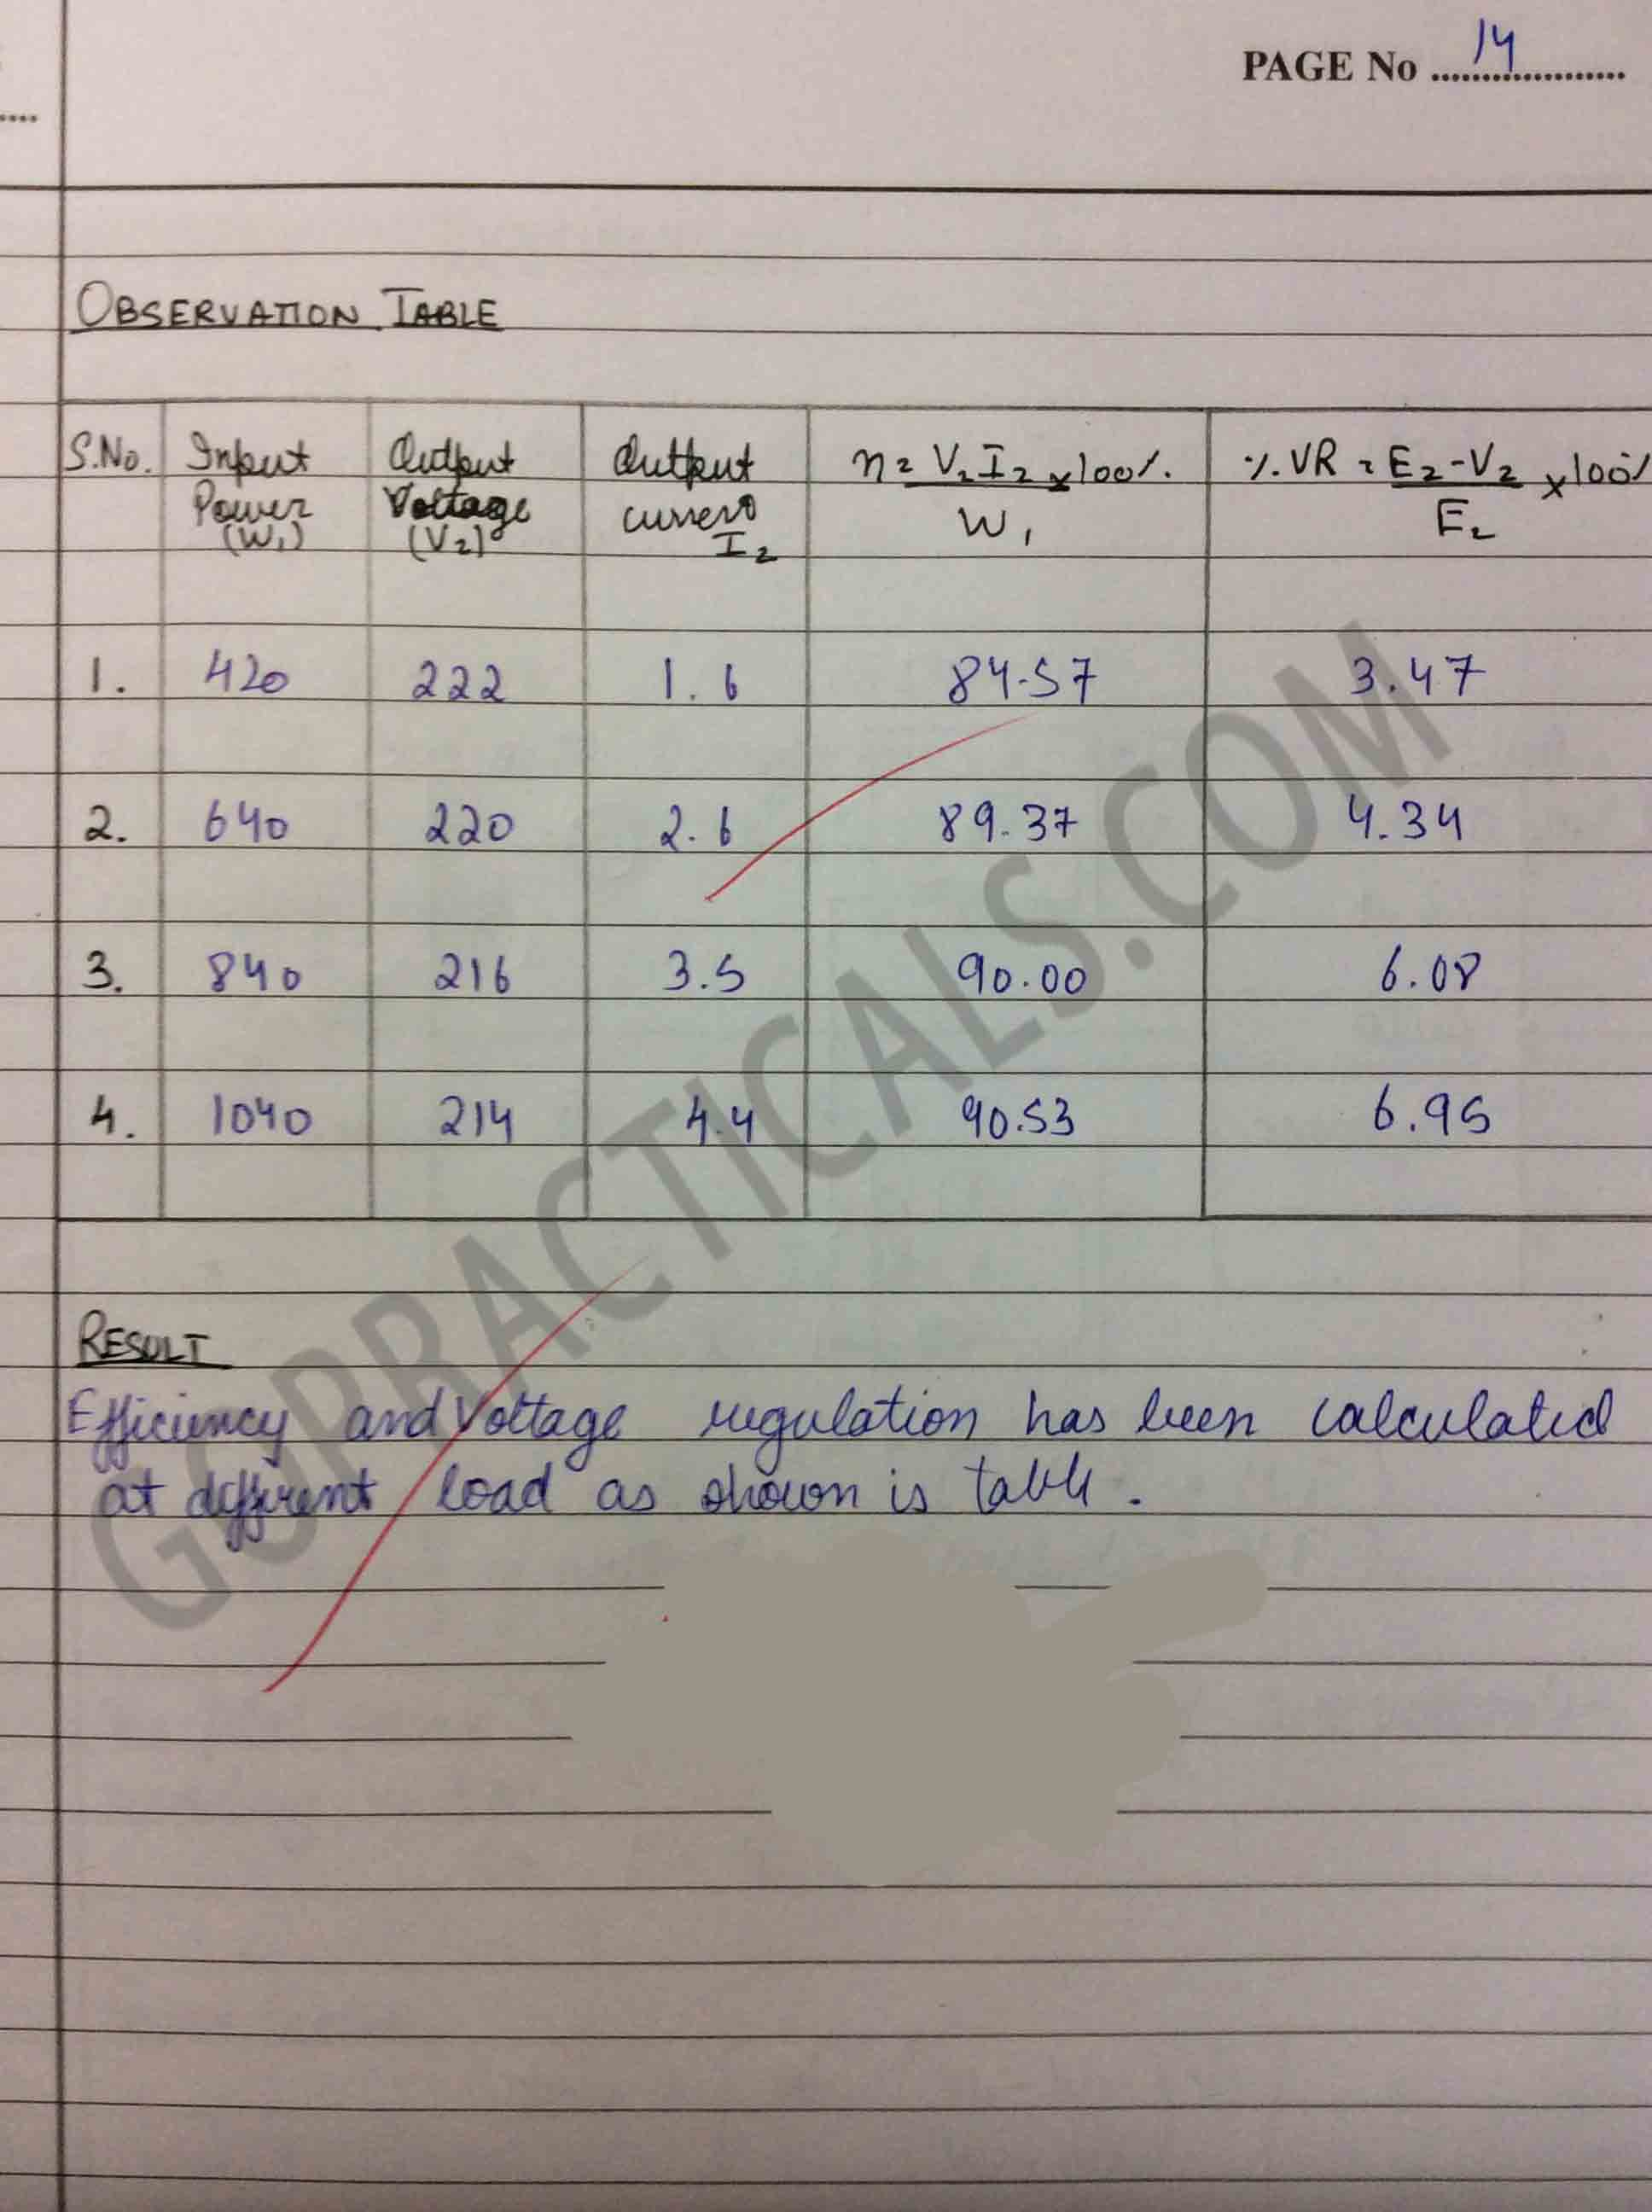 PAGE No 14
OBSERVATION TABLE
S.No. Input Power (W1) Output Voltage (V2) Output current I2 η = V2I2 x100% / W1 %VR = E2-V2 x100% / E2
1. 420 222 1.6 84.57 3.47
2. 640 220 2.6 89.37 4.34
3. 840 216 3.5 90.00 6.08
4. 1040 214 4.4 90.53 6.95
RESULT
Efficiency and Voltage regulation has been calculated
at different load as shown is table.
GOPRACTICALS.COM